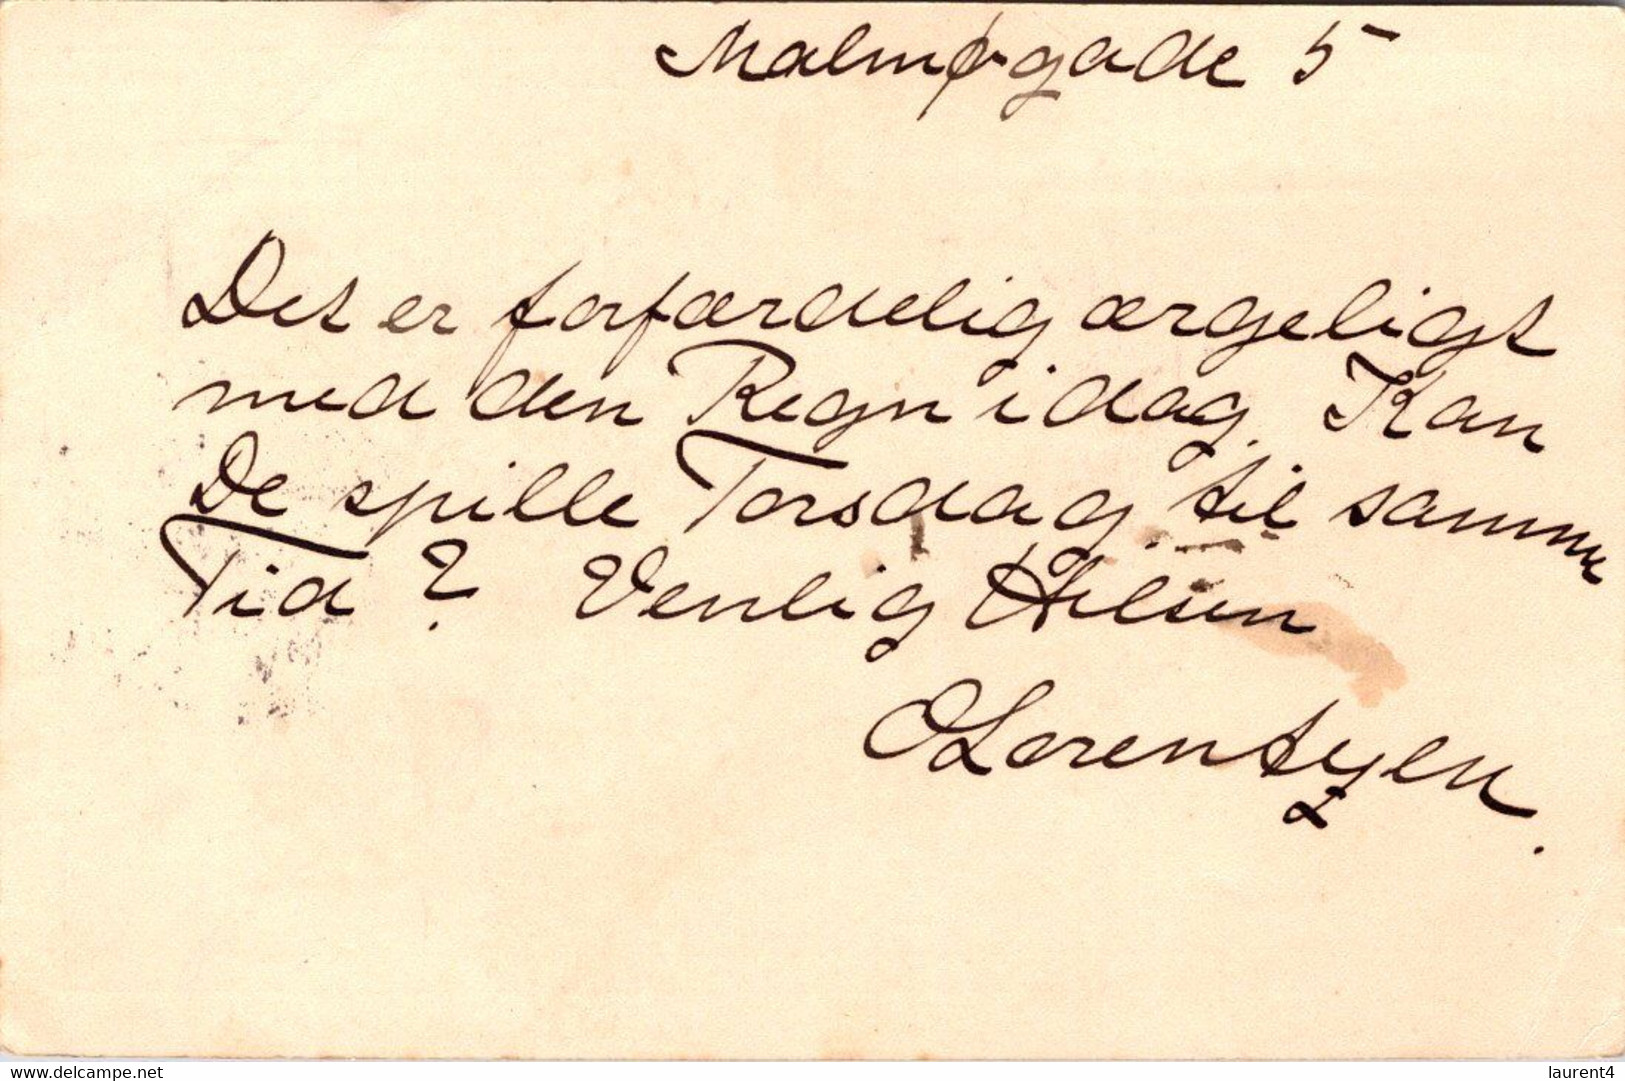 Malmøgade 5
Det er forfærdelig ærgeligt
med den Regn idag. Kan
De spille Torsdag til samme
Tid? Venlig Hilsen
O Lorentzen.
www.delcampe.net
laurent4